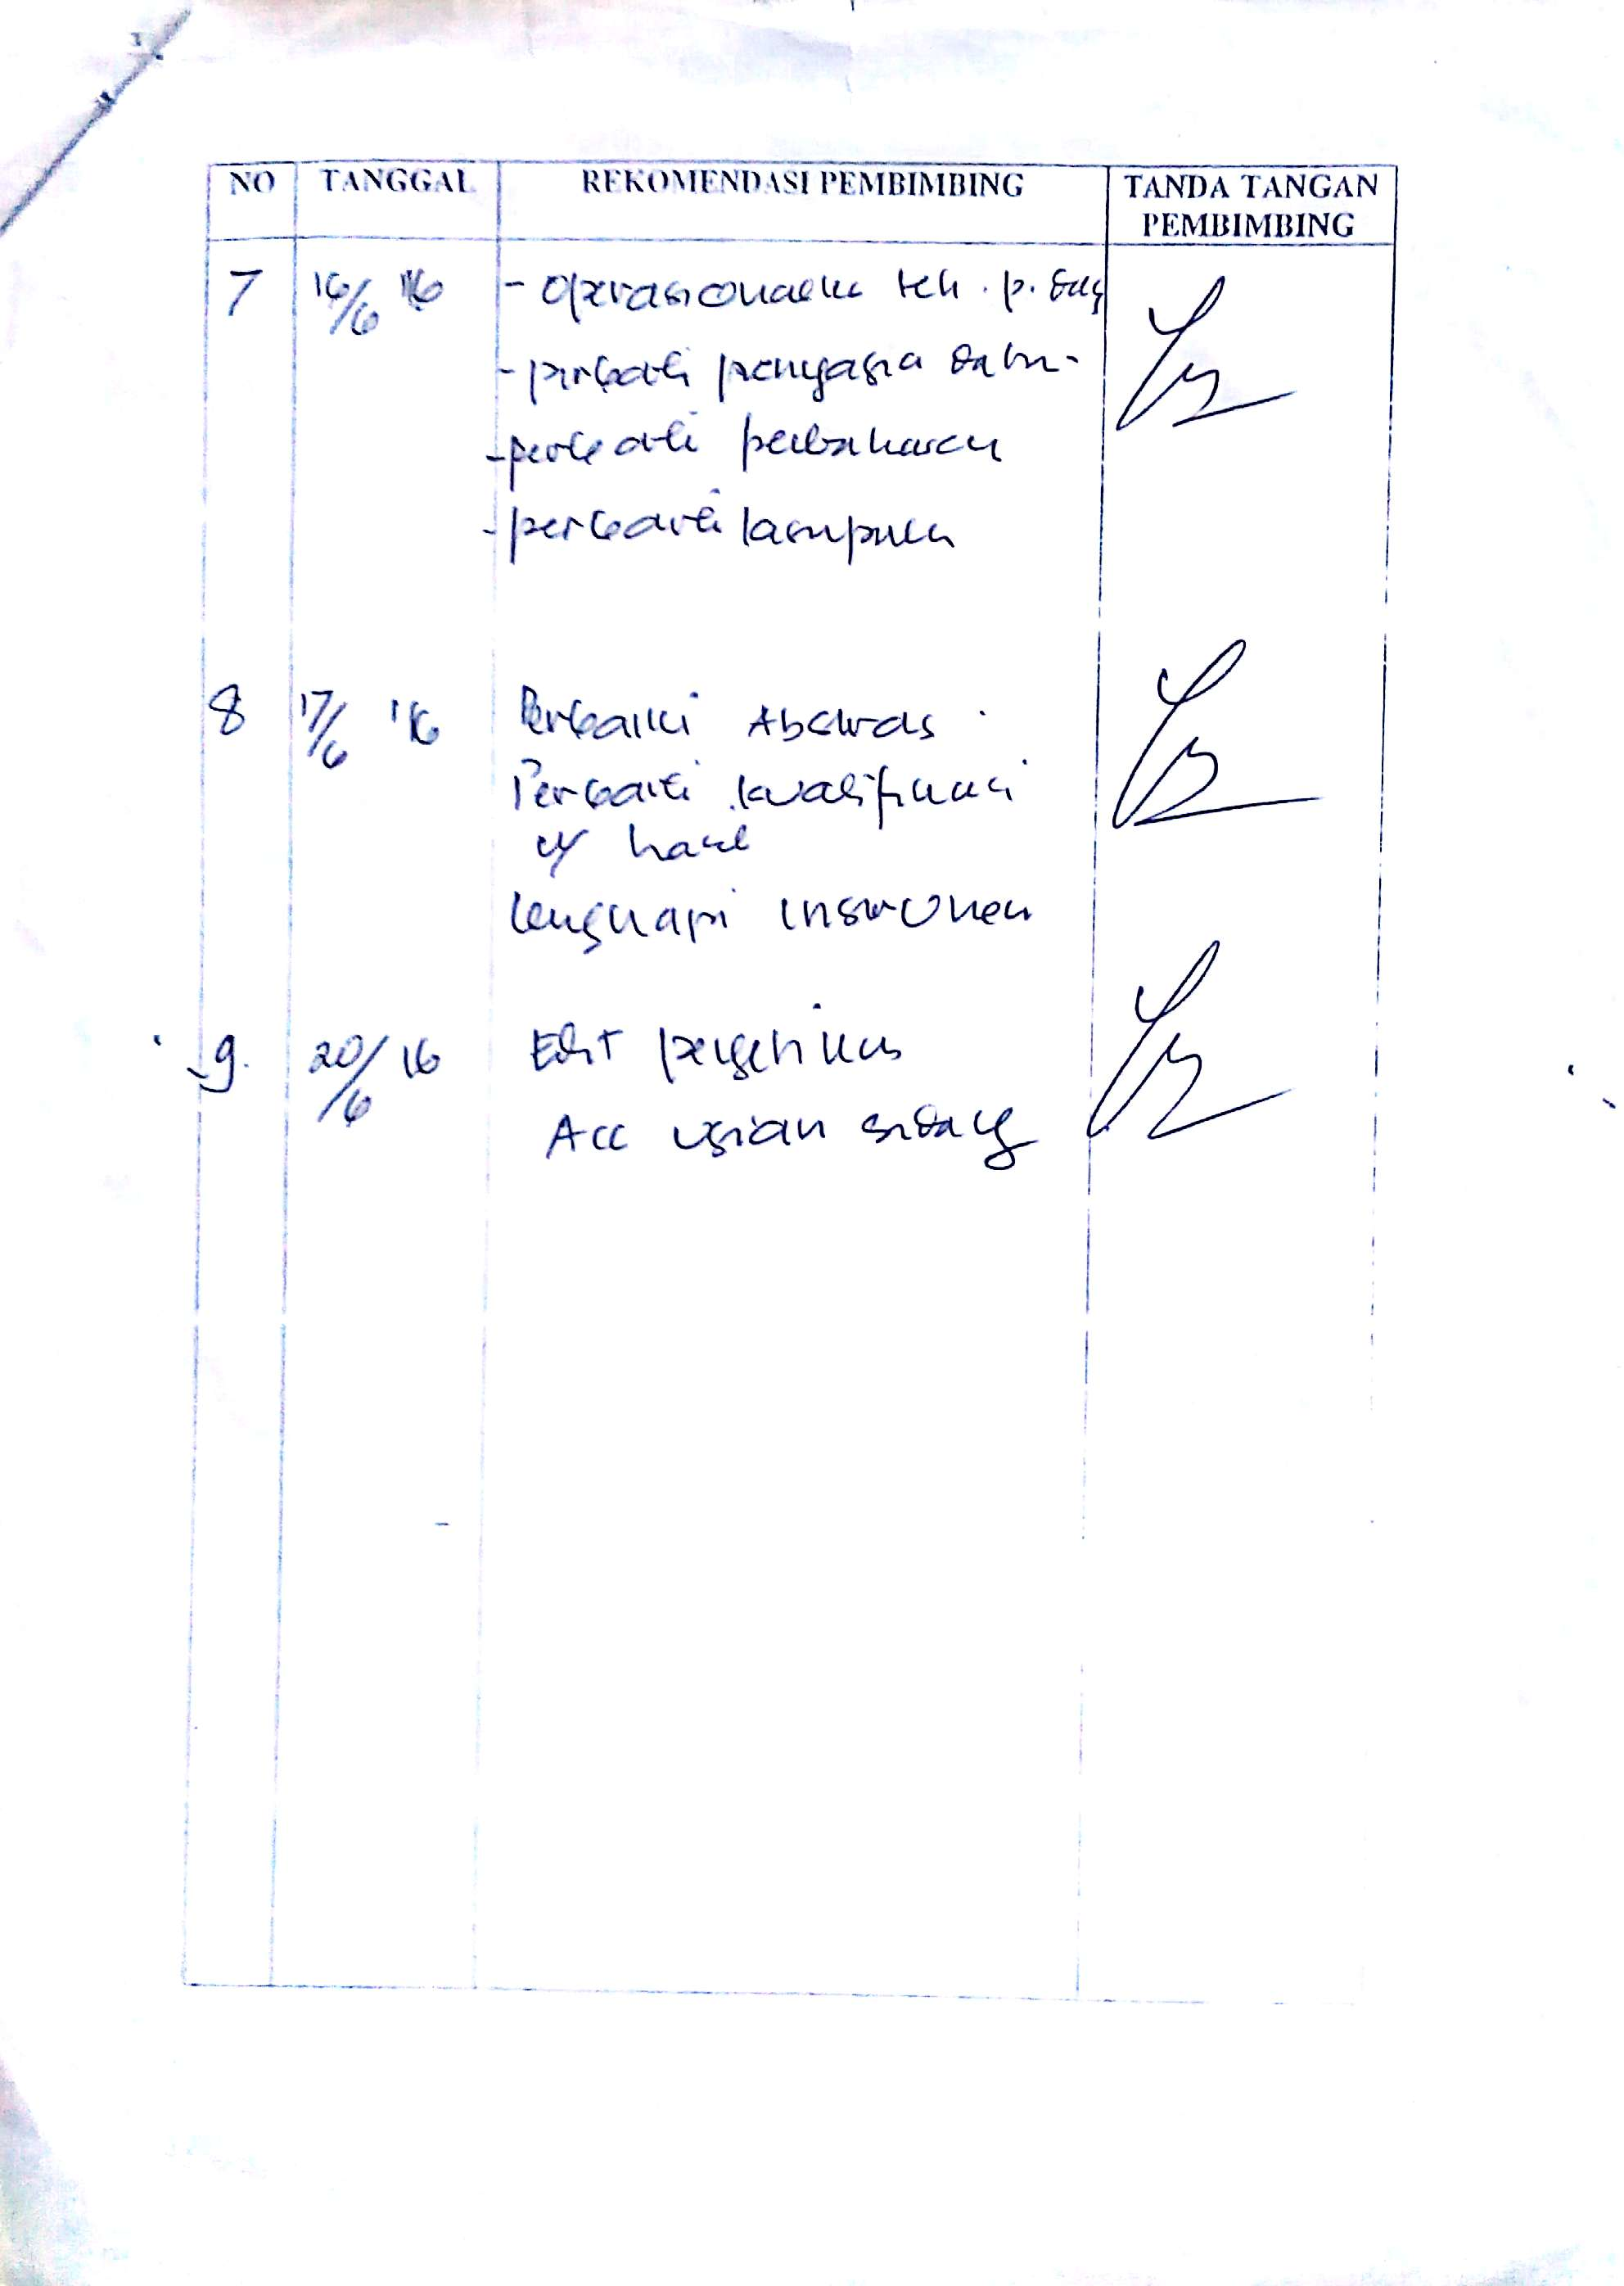 NO TANGGAL REKOMENDASI PEMBIMBING TANDA TANGAN
PEMBIMBING
7 16/6 '16 - Operasionalkn teh. p.
- perbaiki penyajian data
- perbaiki pembahasan
- perbaiki lampiran
8 17/6 '16 Perbaiki Abstrak
Perbaiki kualifikasi
u/ hasil
lengkapi instrumen
9. 20/6 16 Edit pengetikan
Acc ujian sidang